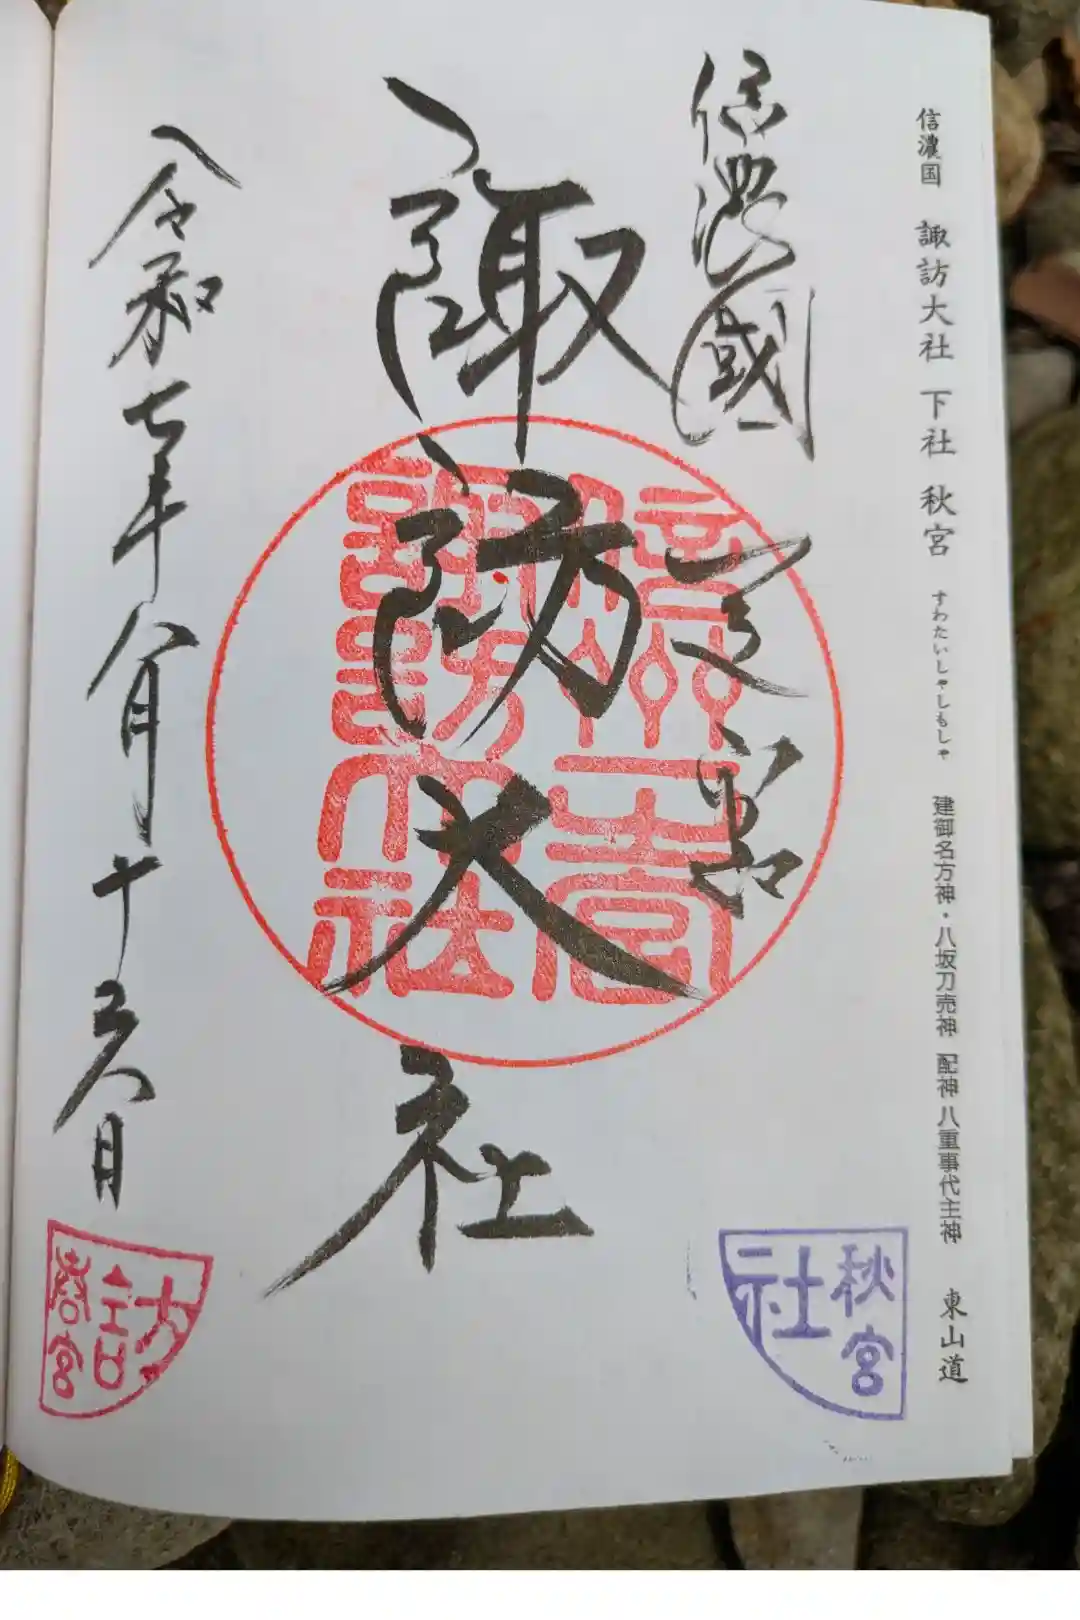 信濃国 諏訪大社 下社 秋宮 すわたいしゃしもしゃ 建御名方神・八坂刀売神 配神 八重事代主神 東山道
信濃國 一之宮
諏訪大社
令和七年八月十五日
諏訪大社
秋宮
社
訪
春宮